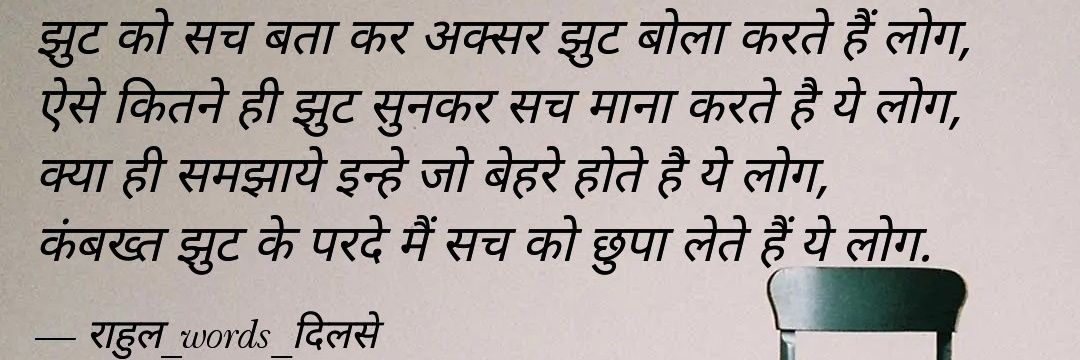 झुट को सच बता कर अक्सर झुट बोला करते हैं लोग,
ऐसे कितने ही झुट सुनकर सच माना करते है ये लोग,
क्या ही समझाये इन्हे जो बेहरे होते है ये लोग,
कंबख्त झुट के परदे मैं सच को छुपा लेते हैं ये लोग.
— राहुल_words_दिलसे